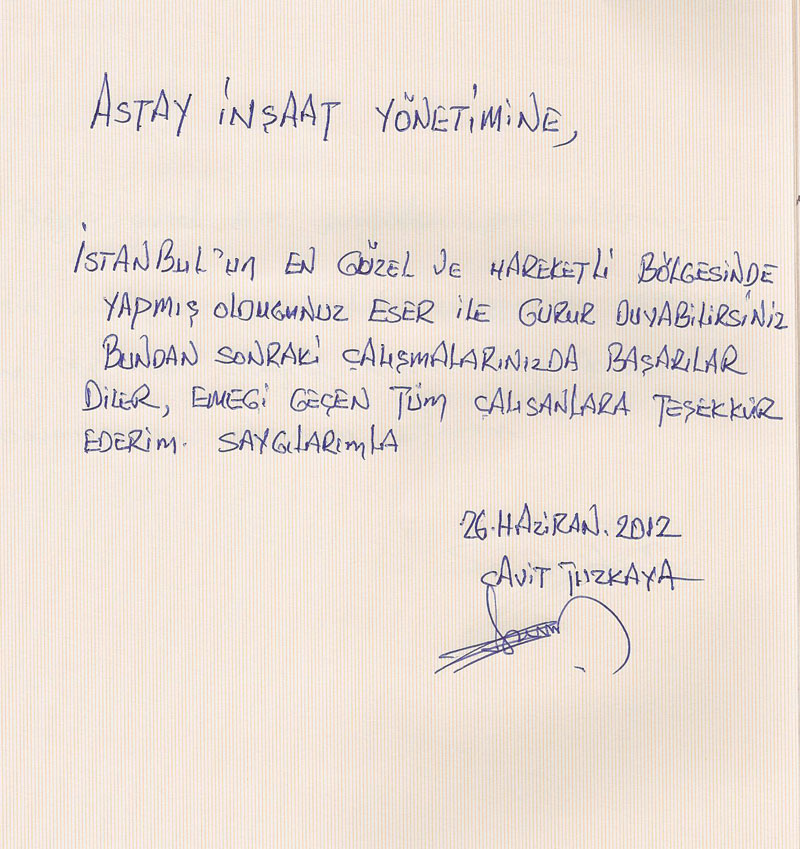 ASTAY İNŞAAT YÖNETİMİNE,
İSTANBUL'un EN GÜZEL VE HAREKETLİ BÖLGESİNDE
YAPMIŞ OLDUGUNUZ ESER İLE GURUR DUYABİLİRSİNİZ
BUNDAN SONRAKİ ÇALIŞMALARINIZDA BAŞARILAR
DİLER, EMEGİ GEÇEN TÜM ÇALIŞANLARA TEŞEKKÜR
EDERİM. SAYGILARIMLA
26.HAZİRAN.2012
CAVİT TUZKAYA